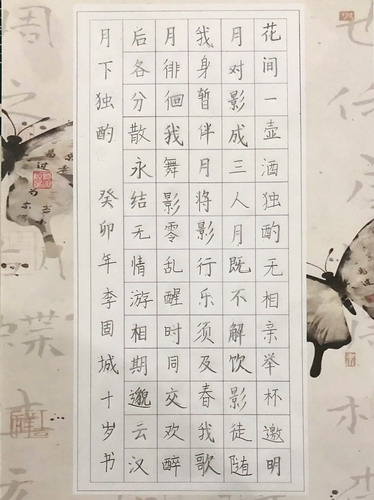 花间一壶酒独酌无相亲举杯邀明
月对影成三人月既不解饮影徒随
我身暂伴月将影行乐须及春我歌
月徘徊我舞影零乱醒时同交欢醉
后各分散永结无情游相期邈云汉
月下独酌 癸卯年李固城十岁书